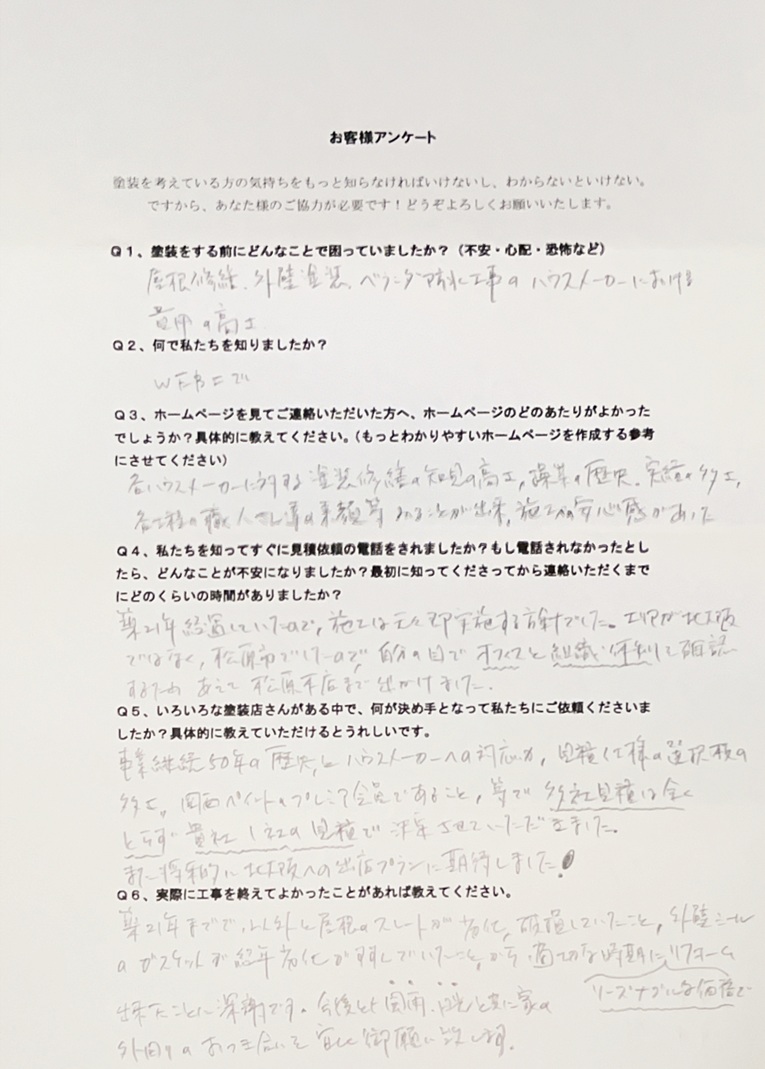 お客様アンケート
塗装を考えている方の気持ちをもっと知らなければいけないし、わからないといけない。
ですから、あなた様のご協力が必要です！どうぞよろしくお願いいたします。
Q１、塗装をする前にどんなことで困っていましたか？（不安・心配・恐怖など）
屋根修繕、外壁塗装、ベランダ防水工事のハウスメーカーにおける
費用の高さ
Q２、何で私たちを知りましたか？
WEB上で
Q３、ホームページを見てご連絡いただいた方へ、ホームページのどのあたりがよかった
でしょうか？具体的に教えてください。（もっとわかりやすいホームページを作成する参考
にさせてください）
各ハウスメーカーに対する塗装修繕の知見の高さ，操業の歴史、実績の多さ，
各工程の職人さん達の素顔等みることが出来，施工への安心感があった
Q４、私たちを知ってすぐに見積依頼の電話をされましたか？もし電話されなかったとし
たら、どんなことが不安になりましたか？最初に知ってくださってから連絡いただくまで
にどのくらいの時間がありましたか？
築21年経過していたので，施工は元々即実施する方針でした。エリアが北大阪
ではなく，松原市でしたので，自分の目でオフィスと組織体制を確認
するため あえて 松原本店まで出かけました．
Q５、いろいろな塗装店さんがある中で、何が決め手となって私たちにご依頼くださいま
したか？具体的に教えていただけるとうれしいです。
事業継続50年の歴史とハウスメーカーへの対応力，見積仕様の選択枝の
多さ，関西ペイントのプレミア会員であること，等で 多社見積は全く
とらず 貴社1社の見積で決定させていただきました。
また将来的に北大阪への出店プランに期待しました！
Q６、実際に工事を終えてよかったことがあれば教えてください。
築21年までで，以外と屋根のスレートが劣化，破損していたこと，外壁シール
のガスケットが経年劣化がすすんでいたこと，から 適切な時期にリフォーム
リーズナブルな価格で
出来たことに深謝です．今後とも
外回りのおつき合いを宜しく御願い致します．